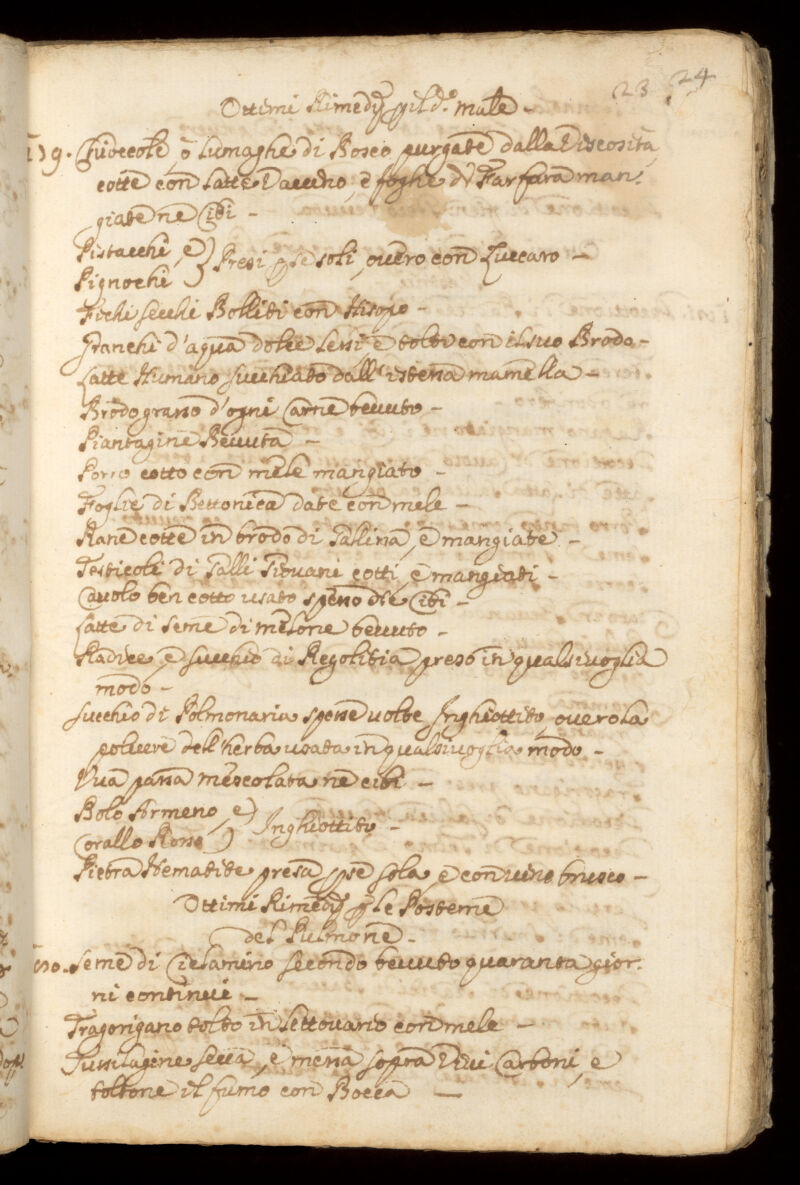 23 24
Ottimi Rimedij p il d.º male -
119. Chioccole, ò lumaghe di Bosco purgate dalla Viscosità
cotte con latte Vaccino, e foghe di Farfara man-
giate ne Cibi -
Pistacchi, e)
Pignochi ) Presi p se soli, overo con Zuccaro -
Fichi secchi Bolliti con Hisopo -
Granchi d'aqua dolce lessi e tolti con il suo Brodo -
Latte Humano succhiato dall'istessa mamella -
Brodo grasso d'ogni Carne bevuto -
Piantagine Bevuta -
Porro cotto con mele mangiato -
Foglie di Bettonica date con mele -
Rane cotte in brodo di Gallina, e mangiate -
Testicoli di Galli Giovani cotti, e mangiati -
Cavolo ben cotto usato spesso ne Cibi -
Latte di seme di melone bevuto -
Radice, e succhio di Regolitia preso in qualsivoglia
modo -
succhio di Polmonaria spesse volte Inghiottito, overo la
polvere dell'herba usata in qualsivoglia modo -
Vua passa mescolata ne cibi -
Bolo Armeno, e)
Corallo Rosso ) Inghiottito -
Pietra Hematite presa p se sola, e con vino brusco -
Ottimi Rimedij p le Posteme
del Pulmone -
120. seme di Ciclamino secondo bevuto quaranta gior-
ni continui -
Tragorigano tolto in Lettovario con mele -
Tussilagine secca, e messa sopra Vivi Carboni, e
toltone il fumo con Bocca -